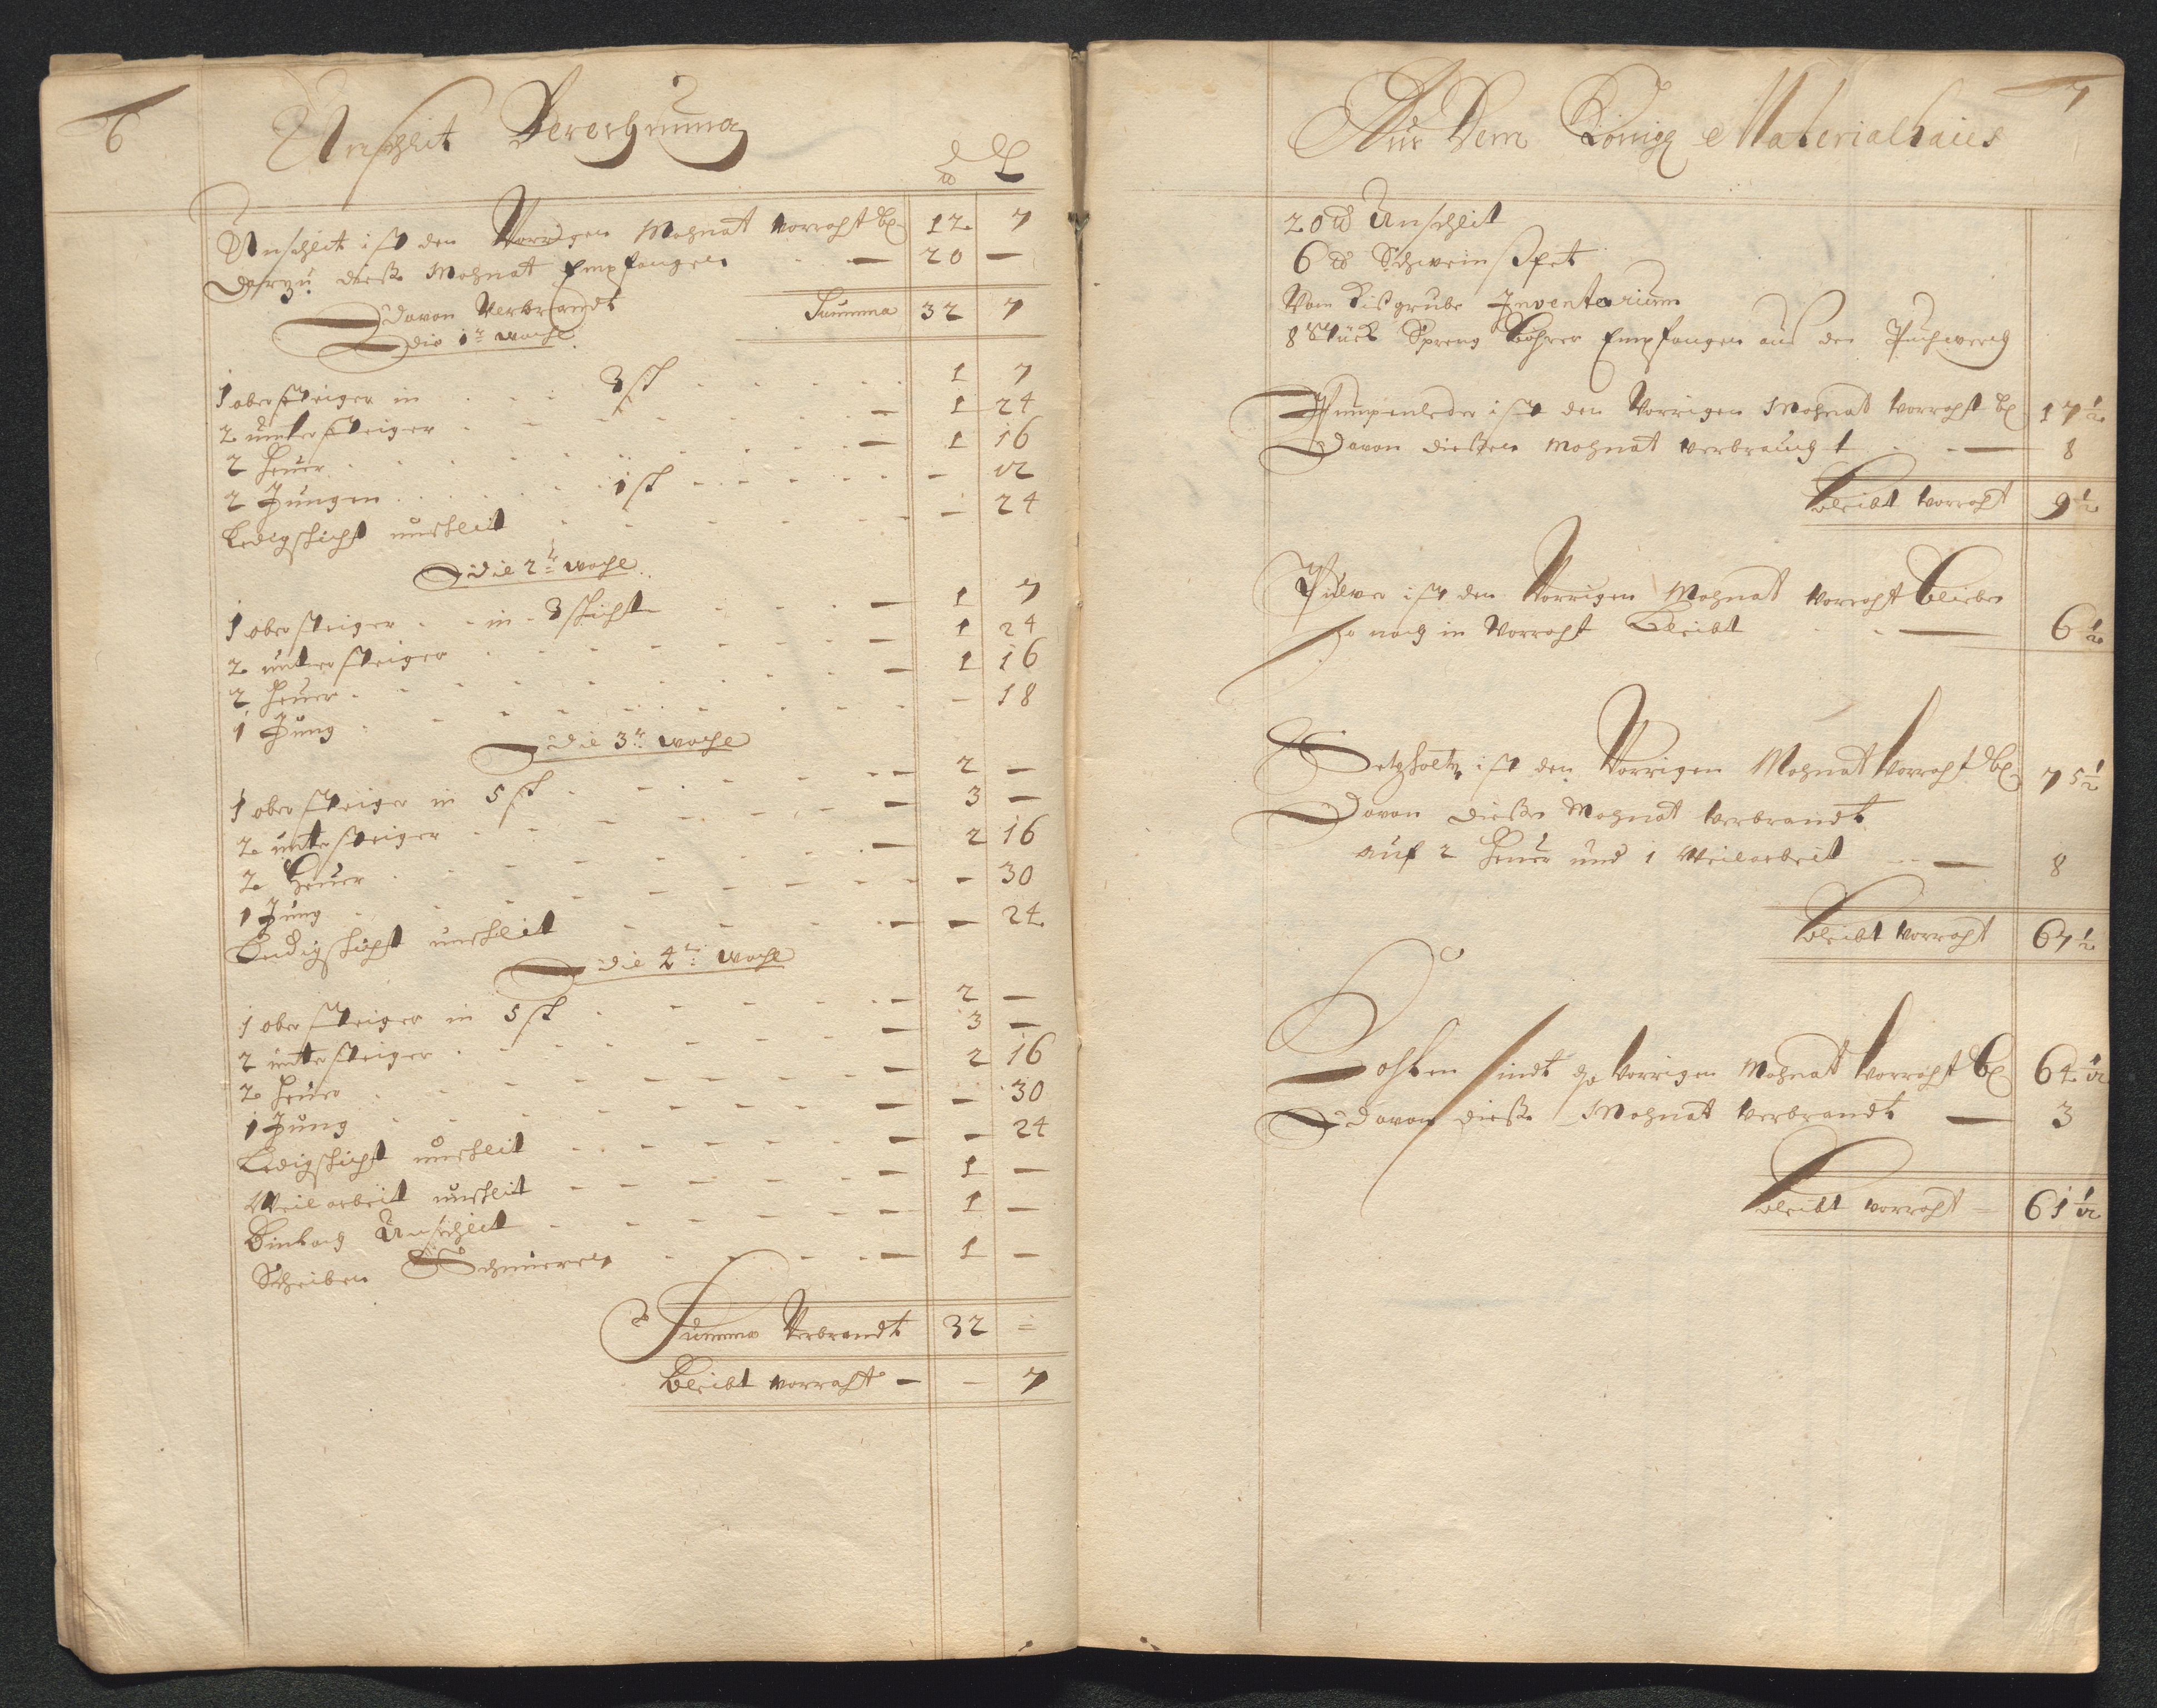 6
Unschlit Berechnung
℔ L
Unschlit ist den Vorrigen Mohnat vorraht bl. 12 7
Darzu dieße Mohnat Empfangen — 20 —
Davon Verbrandt Summa 32 7
die 1te woche
1 obersteiger in 3 sch 1 7
2 untersteiger — 1 24
2 heuer — 1 16
2 Jungen 1 sch — 12
Ledigschicht unschlit — 24
die 2te woche
1 obersteiger in 3 schicht — 1 7
2 untersteiger — 1 24
2 heuer — 1 16
1 Jung — 18
die 3te woche
1 obersteiger in 5 sch — 2 —
2 untersteiger — 3 —
2 heuer — 2 16
1 Jung — 30
Ledigschicht unschlit — — 24
die 4te woche
1 obersteiger in 5 sch — 2 —
2 untersteiger — 3 —
2 heuer — 2 16
1 Jung — — 30
Ledigschicht unschlit — — 24
Weilarbeit unschlit — 1 —
Unschlit — 1 —
Scheiben Schmieren — 1 —
Summa Verbrandt 32 =
Bleibt vorraht — — 7
7
Aus Dem König Materialhaus
20 ℔ Unschlit
6 ℔ Schweinßfet
Vom Inventarium
8 Stück Spreng Bohrer Empfangen aus den Puchwerch
Pumpenleder ist den Vorrigen Mohnat vorraht bl 17 1/2
Davon dießen Mohnat verbraucht — 8
Bleibt vorraht 9 1/2
Pulver ist den Vorrigen Mohnat vorraht Blieben
so noch in Vorraht Bleibt — 6 1/2
Setzholtz ist den Vorrigen Mohnat Vorraht bl 75 1/2
Davon dieße Mohnat Verbrandt
auf 2 heuer und 1 Weilarbeit — 8
Bleibt Vorraht 67 1/2
Bohlen sindt Vorrigen Mohnat Vorraht bl 64 1/2
Davon dieße Mohnat Verbrandt — 3
Bleibt vorraht — 61 1/2